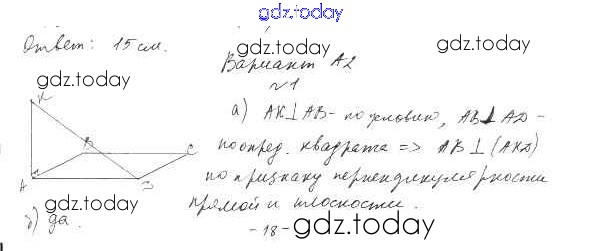 gdz.today
Ответ: 15 см.
gdz.today
gdz.today
Вариант А2
№1
gdz.today
K
а) AK⊥AB - по условию, AB⊥AD -
B
C
по опред. квадрата => AB⊥(AKD)
A
D
по признаку перпендикулярности
gdz.today
прямой и плоскости.
б) да.
- 18 -
gdz.today